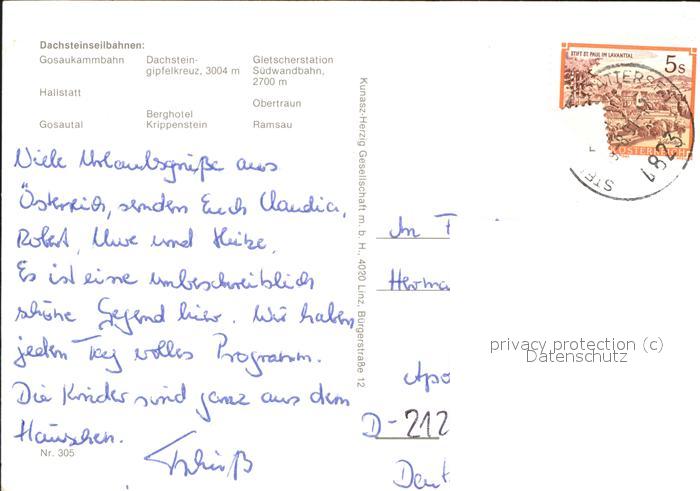 Dachsteinseilbahnen:
Gosaukammbahn Dachstein- Gletscherstation
gipfelkreuz, 3004 m Südwandbahn,
2700 m
Hallstatt
Obertraun
Berghotel
Gosautal Krippenstein Ramsau
Viele Urlaubsgrüße aus
Österreich, senden Euch Claudia,
Robert, Uwe und Heike.
Es ist eine unbeschreiblich
schöne Gegend hier. Wir haben
jeden Tag volles Programm.
Die Kinder sind ganz aus dem
Häuschen.
Tschüß
Nr. 305
Kunasz-Herzig Gesellschaft m. b. H., 4020 Linz, Bürgerstraße 12
STIFT ST. PAUL IM LAVANTTAL
5s
ÖSTERREICH
1823
An F
Herma
Apo
D-212
Deut
privacy protection (c)
Datenschutz